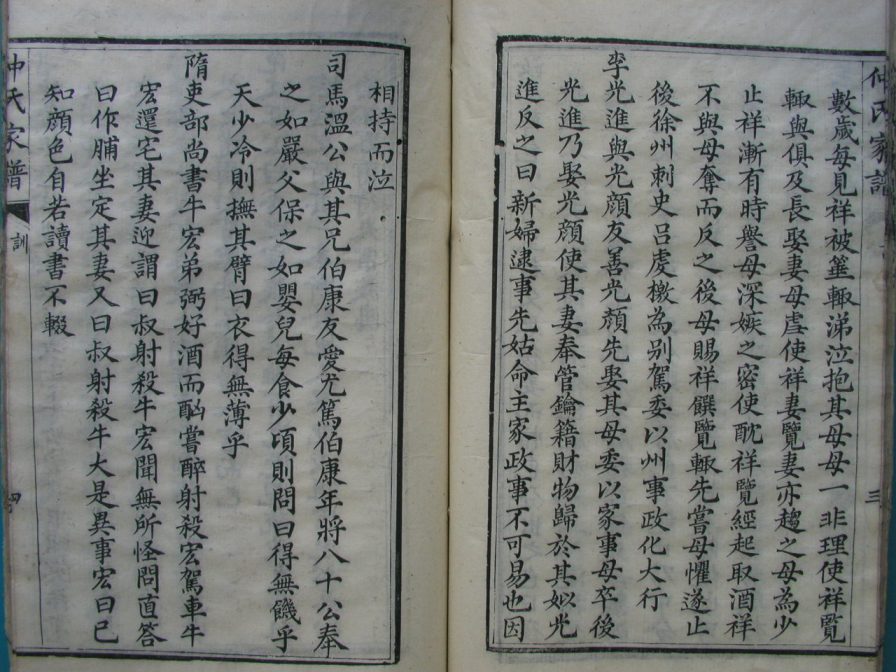 數歲每見祥被箠輒涕泣抱其母母一非理使祥覽
輒與俱及長娶妻母虐使祥妻覽妻亦趨之母為少
止祥漸有時譽母深嫉之密使酖祥覽經起取酒祥
不與母奪而反之後母賜祥饌覽輒先嘗母懼遂止
後徐州刺史呂虔檄為別駕委以州事政化大行
李光進與光顏友善光顏先娶其母委以家事母卒後
光進乃娶光顏使其妻奉管鑰籍財物歸於其姒光
進反之曰新婦逮事先姑命主家政事不可易也因
三
仲氏家譜
訓
四
相持而泣
司馬溫公與其兄伯康友愛尤篤伯康年將八十公奉
之如嚴父保之如嬰兒每食少頃則問曰得無饑乎
天少冷則撫其臂曰衣得無薄乎
隋吏部尚書牛宏弟弼好酒而酗嘗醉射殺宏駕車牛
宏還宅其妻迎謂曰叔射殺牛宏聞無所怪問直答
曰作脯坐定其妻又曰叔射殺牛大是異事宏曰已
知顏色自若讀書不輟